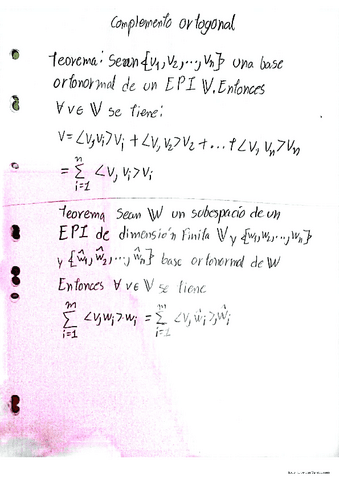 Complemento ortogonal
Teorema: Sean {v₁, v₂, .., vₙ} una base
ortonormal de un EPI V. Entonces
∀ v ∈ V se tiene:
V = <v,v₁>v₁ + <v,v₂>v₂ + ... + <v,vₙ>vₙ
= ∑ⁿᵢ₌₁ <v,vᵢ>vᵢ
Teorema Sean W un subespacio de un
EPI de dimensión Finita V y {w₁, w₂, .., wₙ}
y {ŵ₁, ŵ₂, .., ŵₙ} base ortonormal de W
Entonces ∀ v ∈ V se tiene
∑ᵐᵢ₌₁ <v,wᵢ>wᵢ = ∑ᵐᵢ₌₁ <v,ŵᵢ>,ŵᵢ